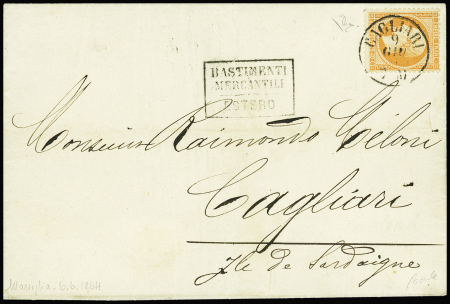 CAGLIARI
9
GIU
BASTIMENTI
MERCANTILI
ESTERO
Monsieur Raimondo Meloni
Cagliari
Ile de Sardaigne
Marsiglia - 6.6.1864